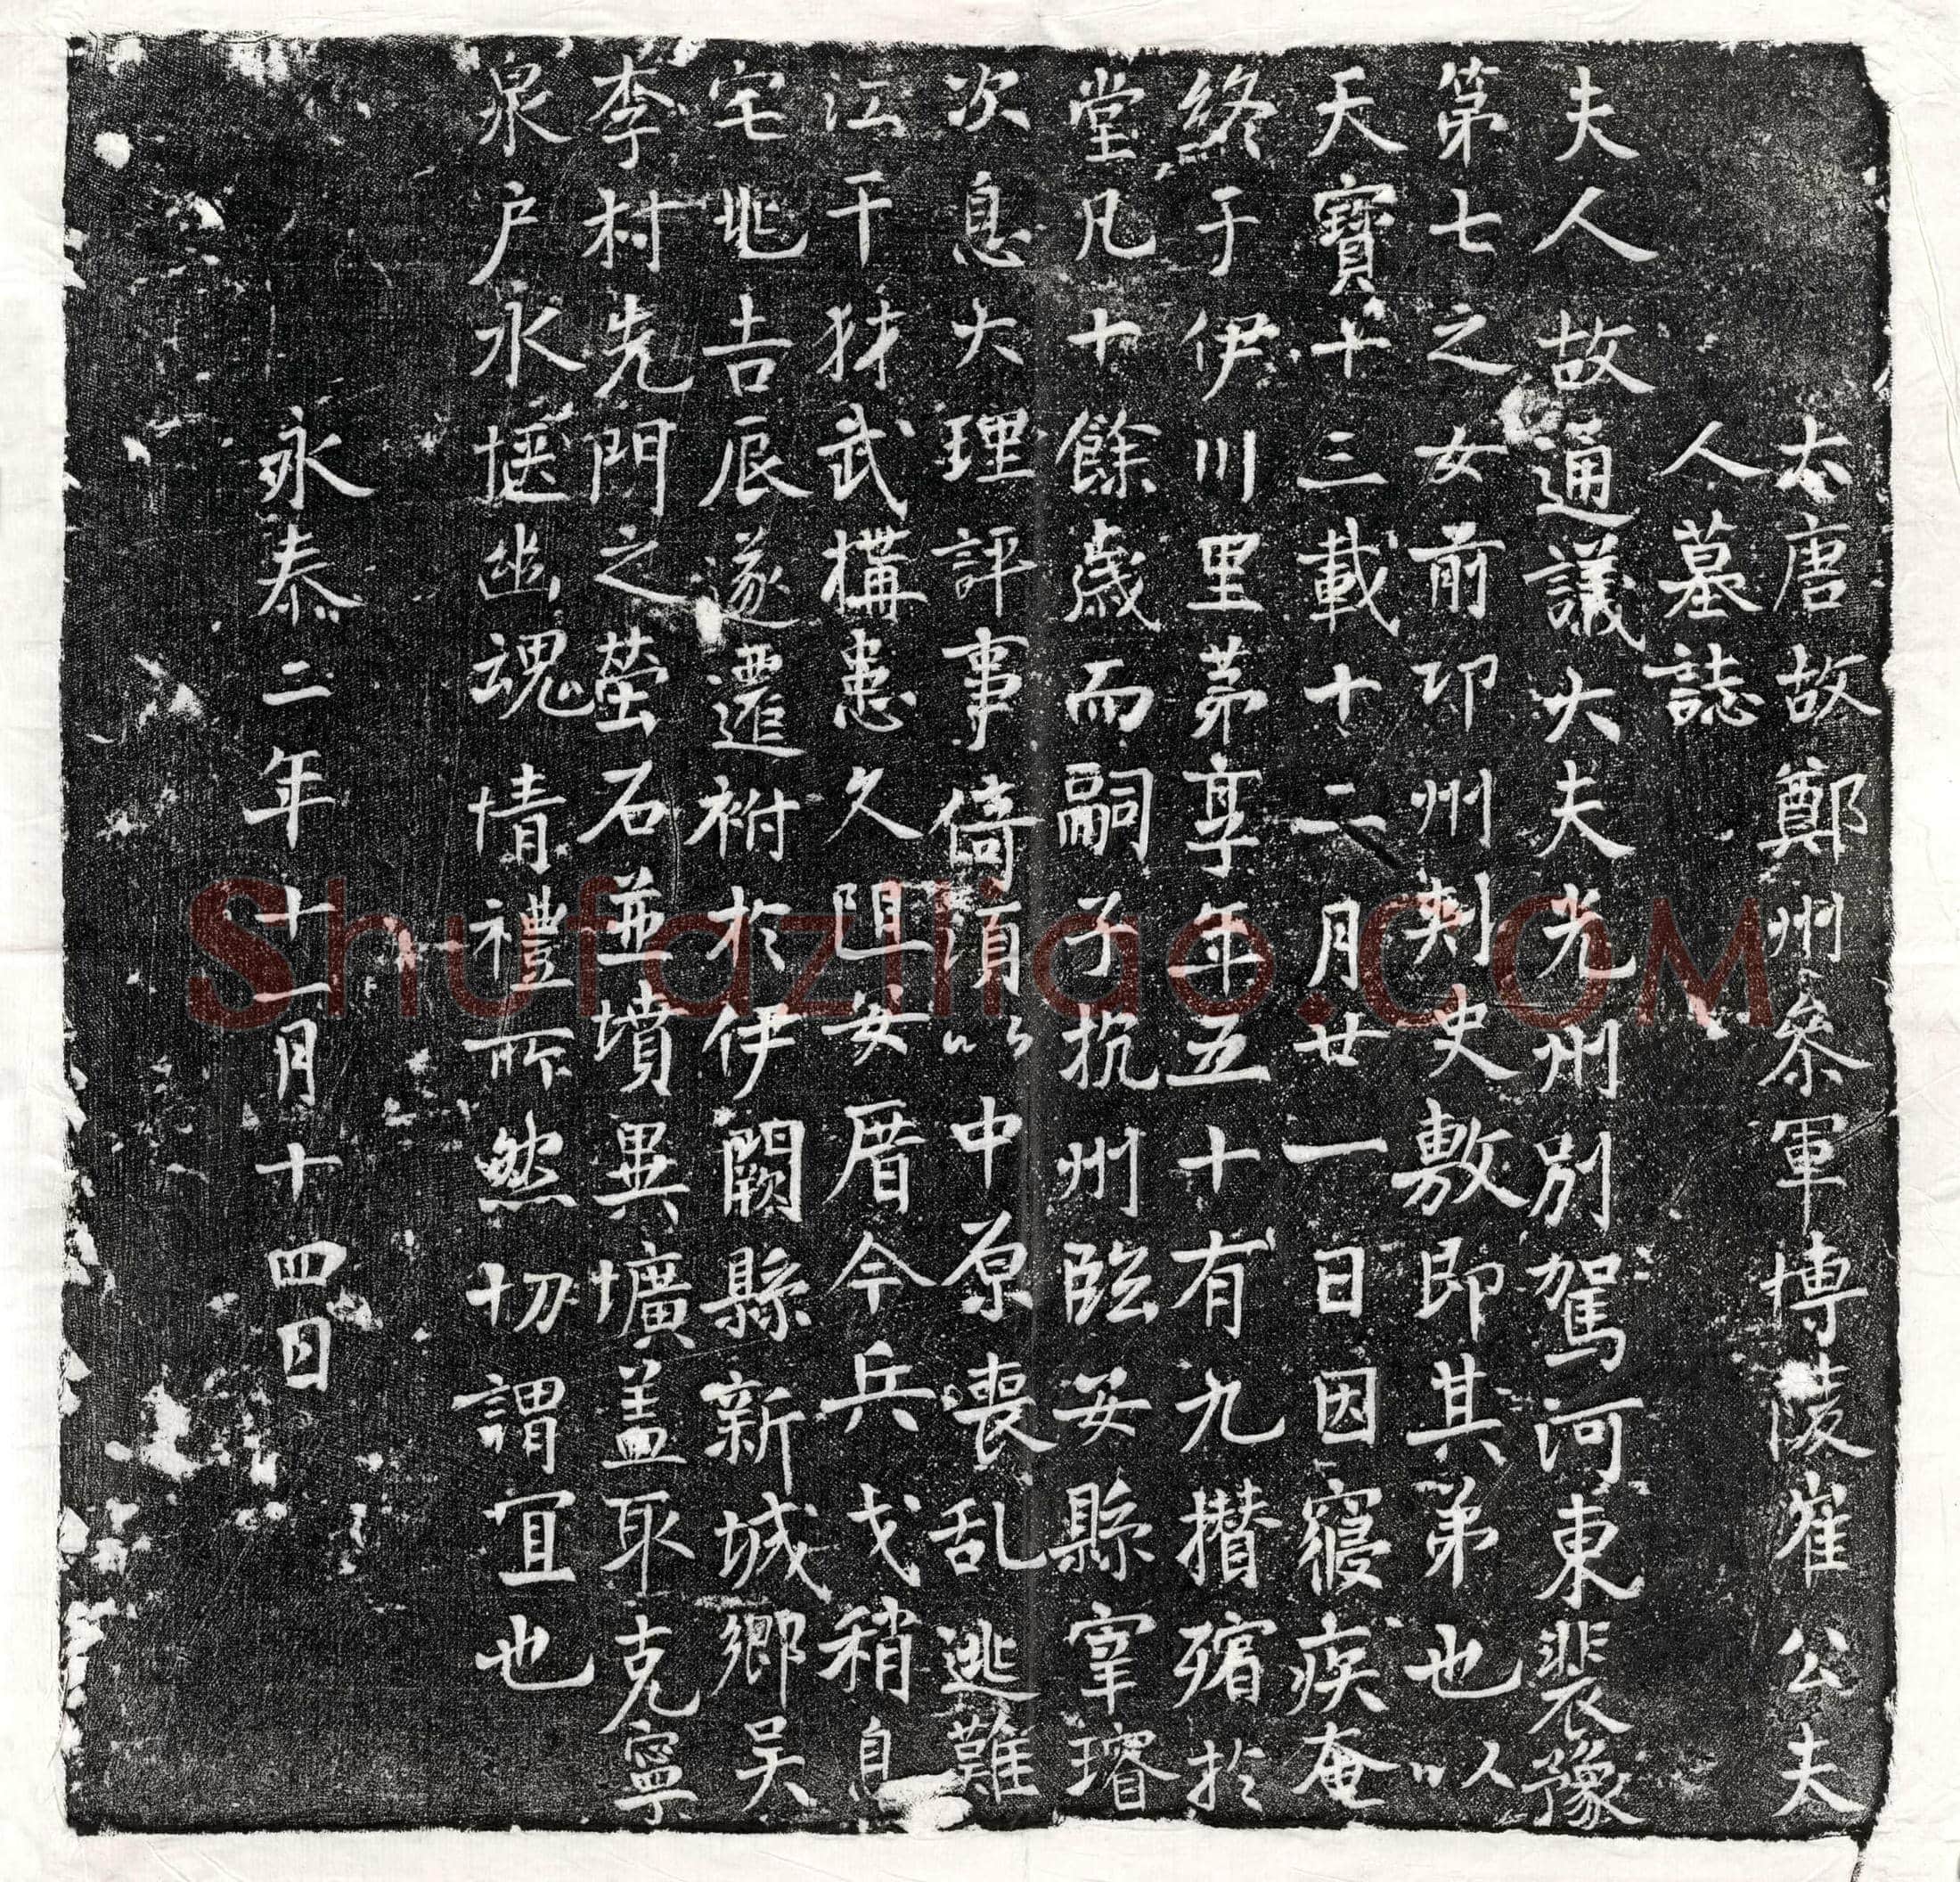 大唐故鄭州叅軍博陵崔公夫
人墓誌
夫人故通議大夫光州別駕河東裴豫
第七之女前邛州刾史敷即其弟也以
天寶十三載十二月廿一日因寢疾奄
終于伊川里苐享年五十有九攢殯於
堂凡十餘歳而嗣子抗州臨安縣宰璿
次息大理評事倚湏以中原喪乱逃難
江干犲武構患久阻安厝今兵戈稍自
宅兆吉辰遂遷祔於伊闕縣新城鄉吴
李村先門之塋石並墳異壙盖取克寧
泉戶永遂幽魂情禮所然切謂宜也
永泰二年十一月十四日
Shufaziliao.com